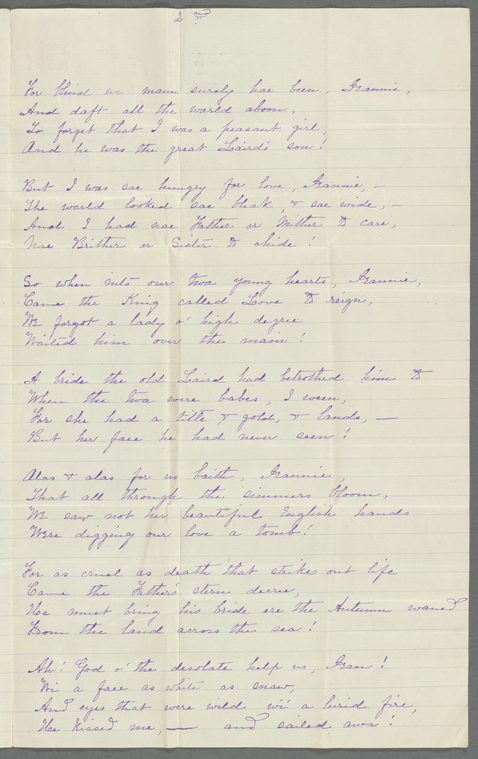 2nd
For blind we maun surely hae been, Jeannie,
And daft all the warld aboon,
To forget that I was a peasant girl,
And he was the great Laird's son!
But I was sae hungry for love, Jeannie, —
The warld looked sae bleak, & sae wide, —
And I had nae Father or Mither to care,
Nae Brither or Sister to chide!
So when into our twa young hearts, Jeannie,
Came the King called Love to reign,
We forgot a lady o' high degree
Waited him over the main!
A bride the old Laird had betrothed him to
When the twa were babes, I ween,
For she had a title & gold, & lands, —
But her face he had never seen!
Alas & alas for us baith, Jeannie,
That all through the simmers bloom,
We saw not her beautiful English hands
Were digging our love a tomb!
For as cruel as death that strikes out life
Came the Father's stern decree,
He must bring his bride ere the Autumn waned
From the land across the sea!
Ah! God o' the desolate help us, Jean!
Wi a face as white as snaw,
And eyes that were wild wi' a lurid fire,
He kissed me, — and sailed awa!